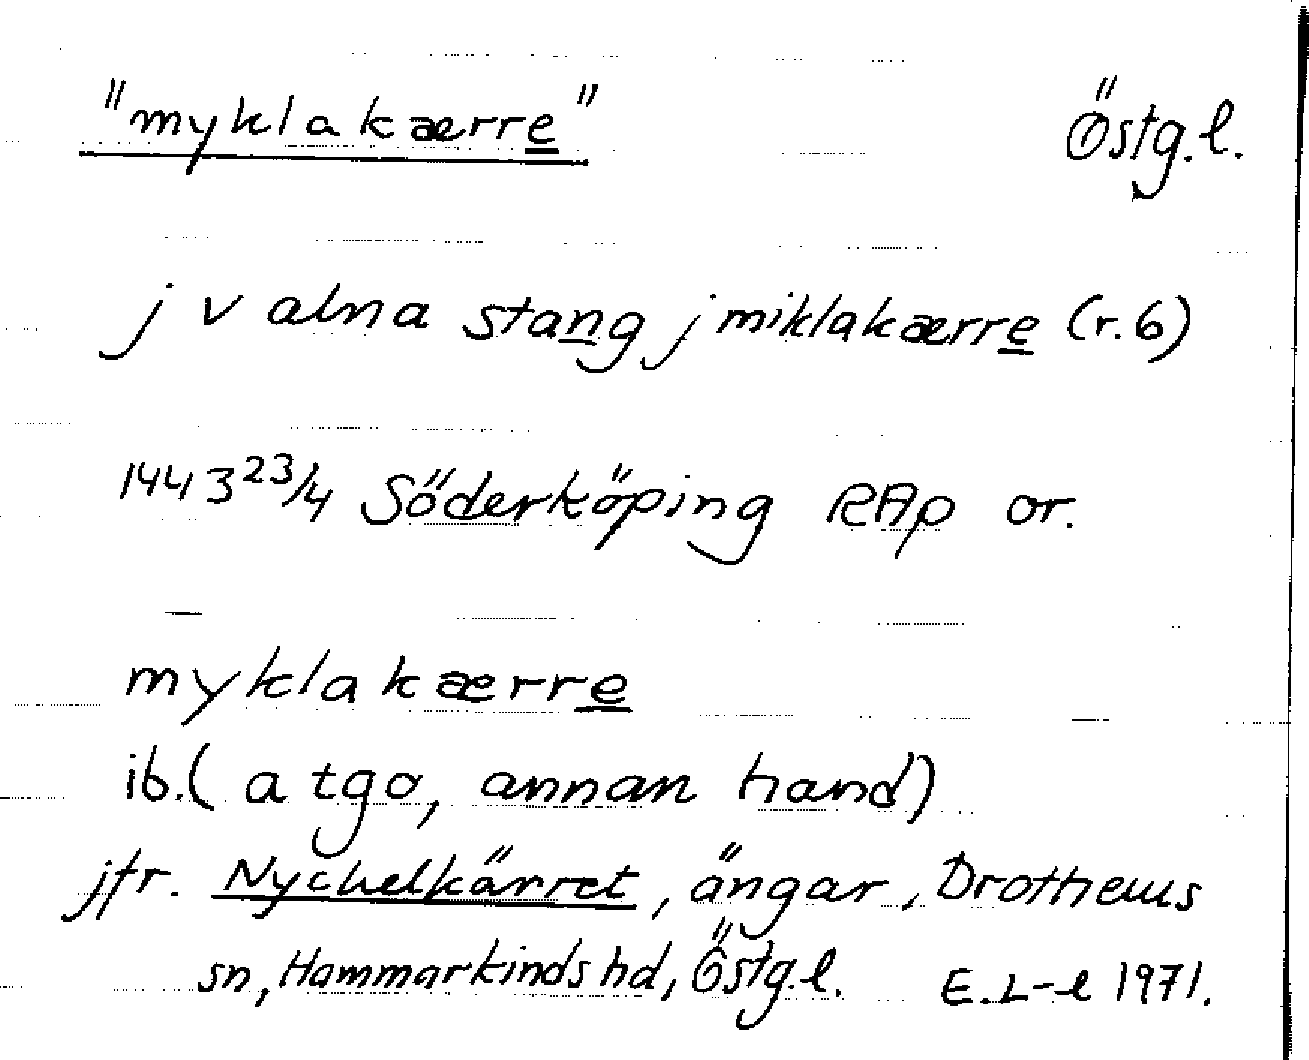 "myklakærre" Östg.l.
j v alna stang j miklakærre (r.6)
1443 23/4 Söderköping RAp or.
myklakærre
ib. (a tgo, annan hand)
jfr. Nyckelkärret, ängar, Drothems
sn, Hammarkinds hd, Östg.l. E.L-l 1971.